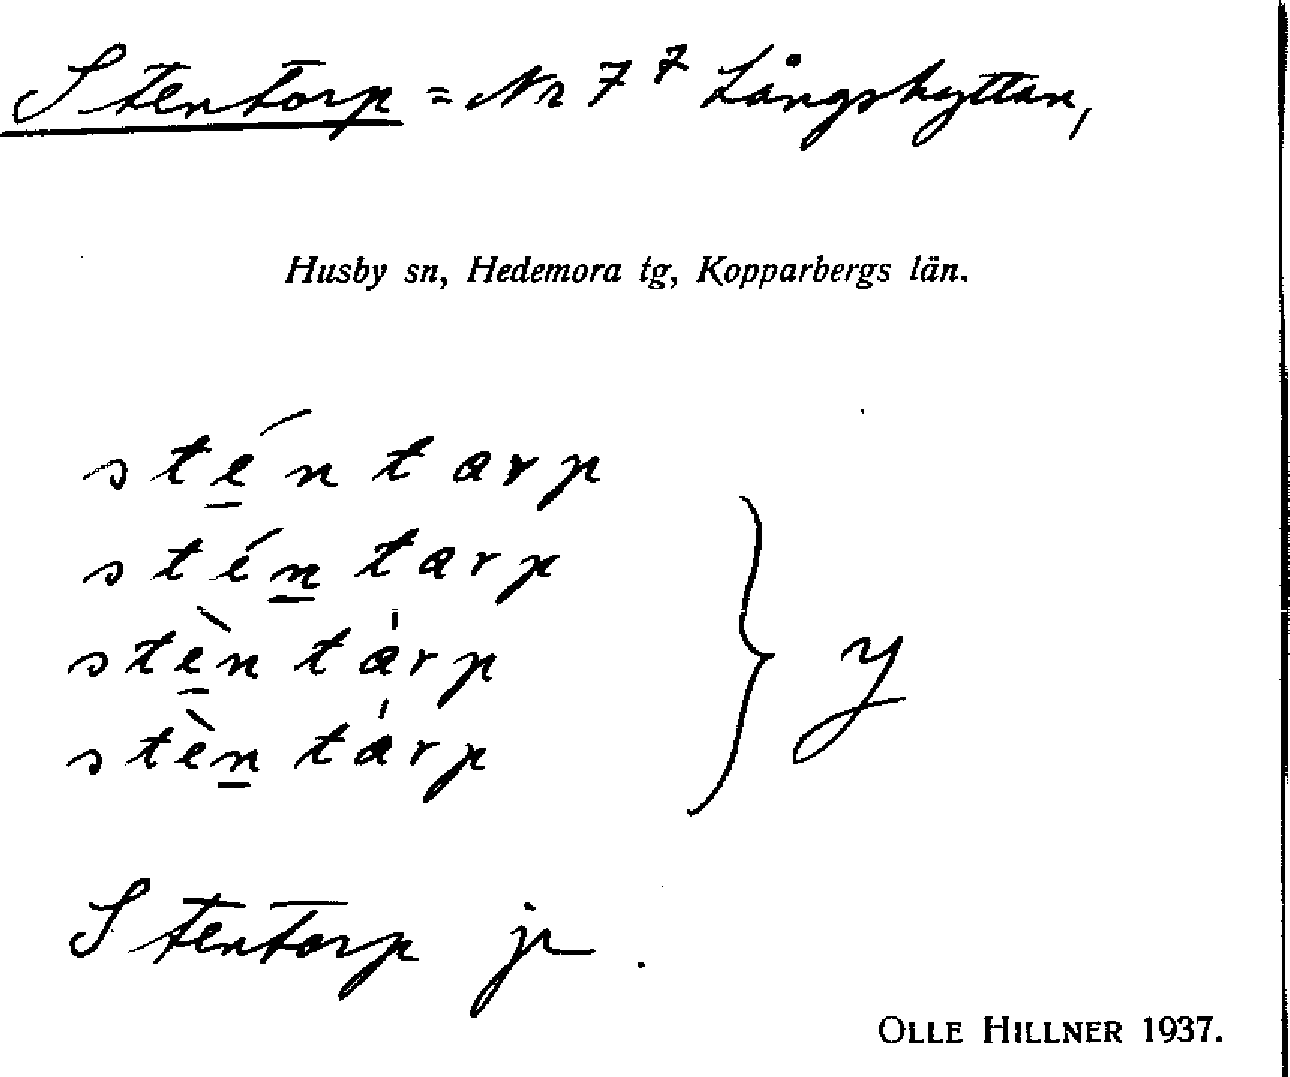 Stentorp = Nr 7⁷ Långshyttan,
Husby sn, Hedemora tg, Kopparbergs län.
sté̲ntarp
stén̲tarp
stè̲nta̍rp
stèn̲ta̍rp
y
Stentorp jr.
OLLE HILLNER 1937.